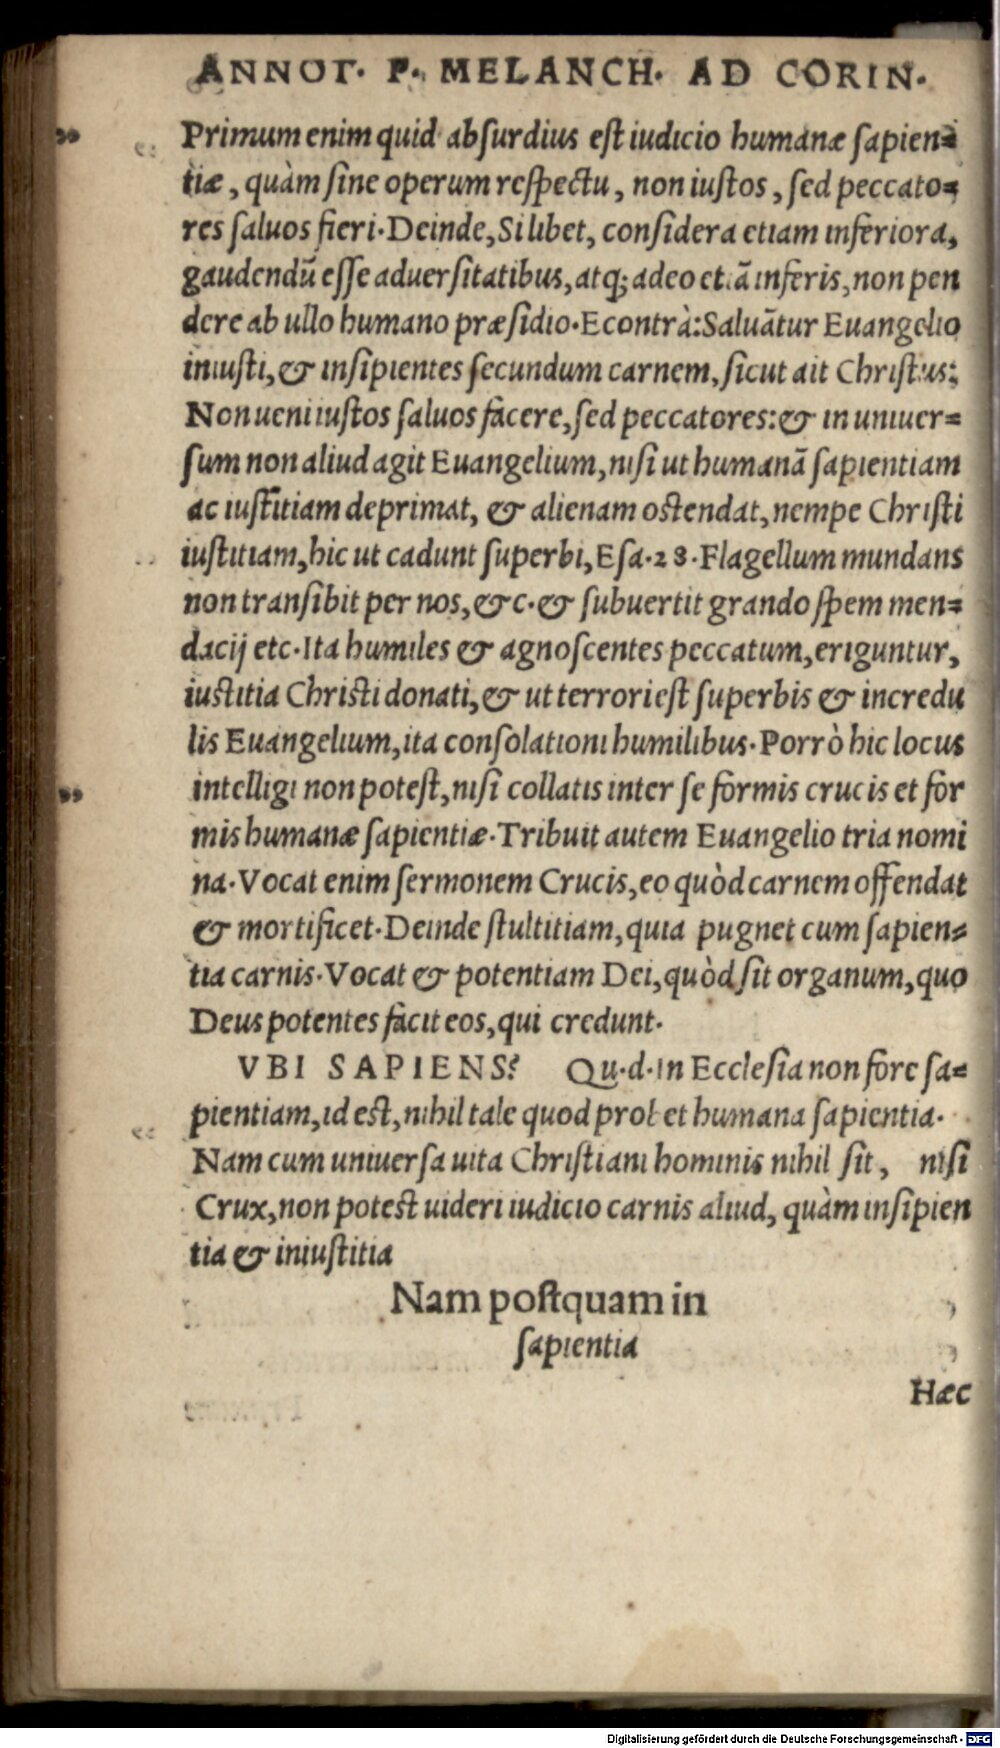 ANNOT. P. MELANCH. AD CORIN.
Primum enim quid absurdius est iudicio humanæ sapien=
tiæ, quàm sine operum respectu, non iustos, sed peccato=
res saluos fieri. Deinde, Si libet, considera etiam inferiora,
gaudendũ esse aduersitatibus, atq; adeo etiã inferis, non pen
dere ab ullo humano præsidio. Econtrà: Saluãtur Euangelio
iniusti, & insipientes secundum carnem, sicut ait Christus:
Non ueni iustos saluos facere, sed peccatores: & in uniuer=
sum non aliud agit Euangelium, nisi ut humanã sapientiam
ac iustitiam deprimat, & alienam ostendat, nempe Christi
iustitiam, hic ut cadunt superbi, Esa. 28. Flagellum mundans
non transibit per nos, &c. & subuertit grando spem men=
dacij etc. Ita humiles & agnoscentes peccatum, eriguntur,
iustitia Christi donati, & ut terrori est superbis & incredu
lis Euangelium, ita consolationi humilibus. Porrò hic locus
intelligi non potest, nisi collatis inter se formis crucis et for
mis humanæ sapientiæ. Tribuit autem Euangelio tria nomi
na. Vocat enim sermonem Crucis, eo quòd carnem offendat
& mortificet. Deinde stultitiam, quia pugnet cum sapien=
tia carnis. Vocat & potentiam Dei, quòd sit organum, quo
Deus potentes facit eos, qui credunt.
VBI SAPIENS? Qu. d. In Ecclesia non fore sa=
pientiam, id est, nihil tale quod probet humana sapientia.
Nam cum uniuersa uita Christiani hominis nihil sit, nisi
Crux, non potest uideri iudicio carnis aliud, quàm insipien
tia & iniustitia
Nam postquam in
sapientia
Hæc
Digitalisierung gefördert durch die Deutsche Forschungsgemeinschaft - DFG